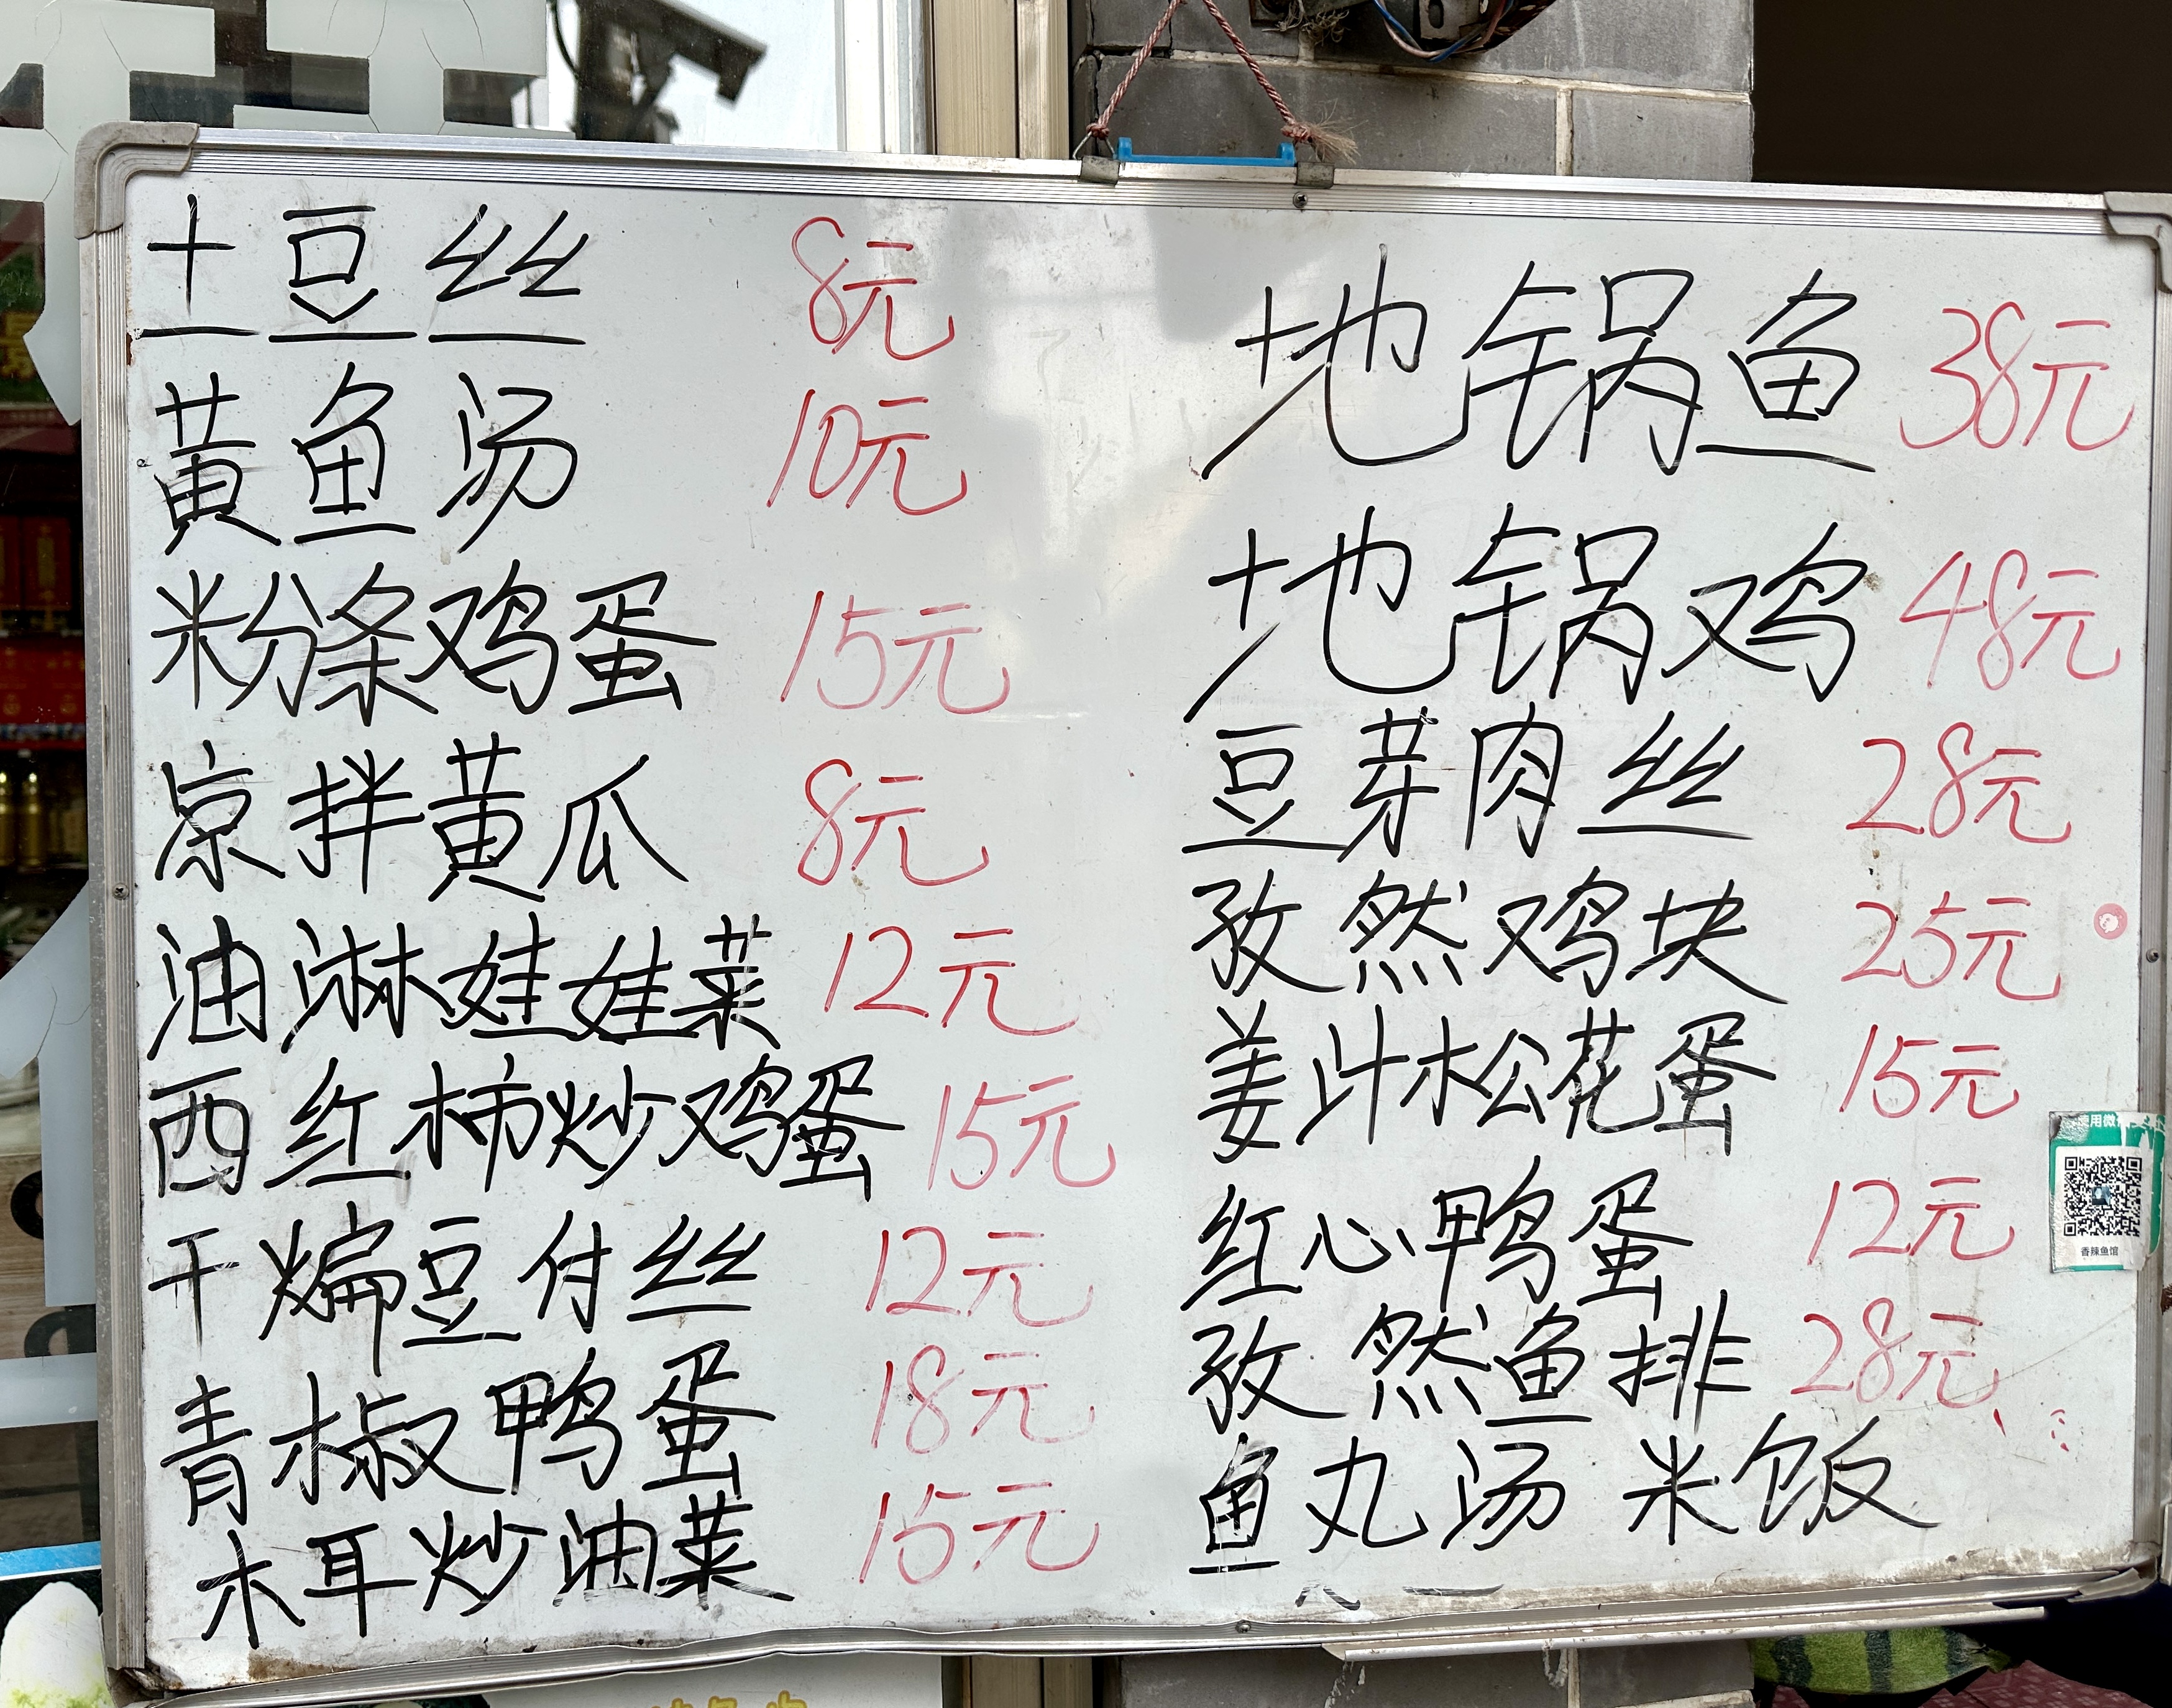 土豆丝 8元
黄鱼汤 10元
粉条鸡蛋 15元
凉拌黄瓜 8元
油淋娃娃菜 12元
西红柿炒鸡蛋 15元
干煸豆付丝 12元
青椒鸭蛋 18元
木耳炒油菜 15元
地锅鱼 38元
地锅鸡 48元
豆芽肉丝 28元
孜然鸡块 25元
姜汁松花蛋 15元
红心鸭蛋 12元
孜然鱼排 28元
鱼丸汤 米饭
香辣鱼馆